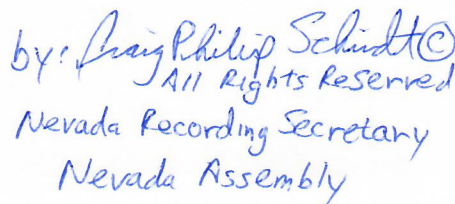 by: Craig Philip Schmidt ©
All Rights Reserved
Nevada Recording Secretary
Nevada Assembly